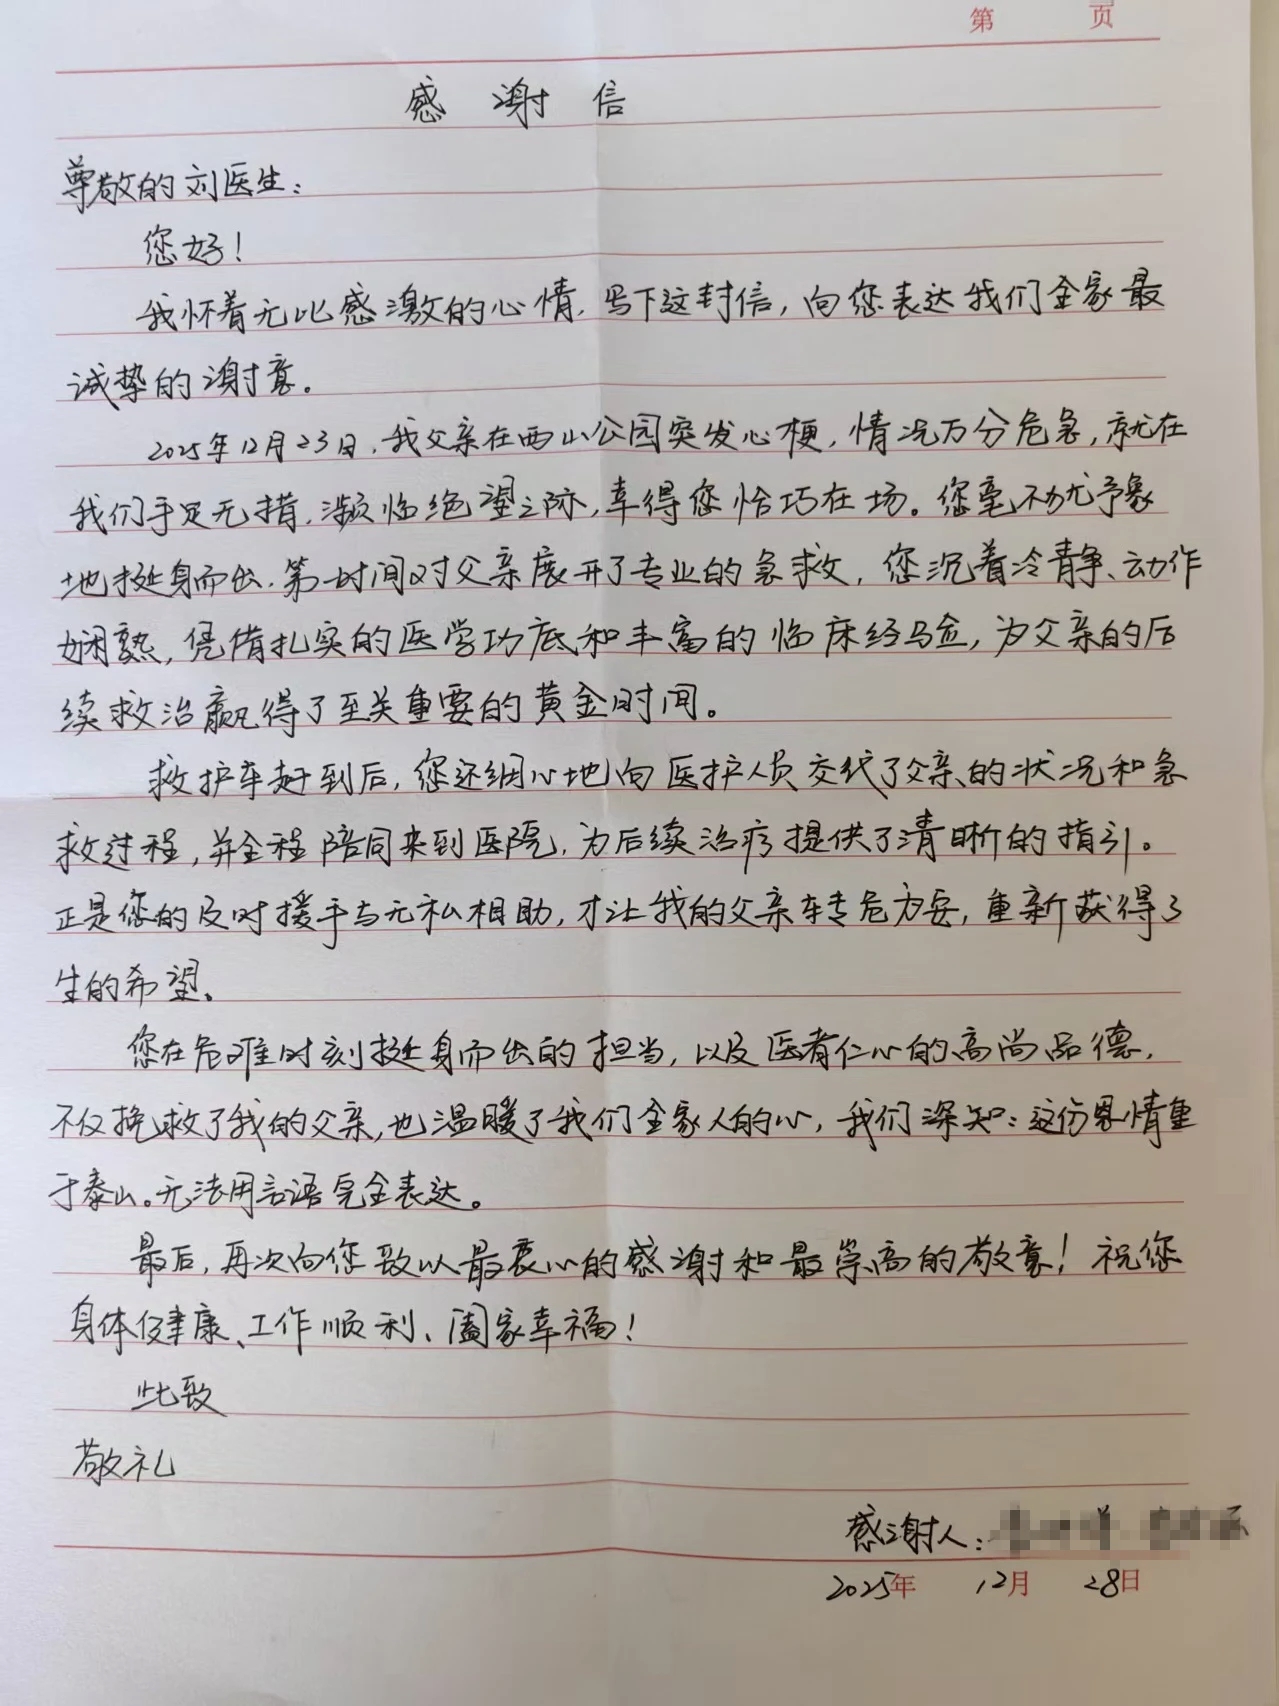 第 页
感谢信
尊敬的刘医生：
您好！
我怀着无比感激的心情，写下这封信，向您表达我们全家最
诚挚的谢意。
2025年12月23日，我父亲在西山公园突发心梗，情况万分危急，就在
我们手足无措，濒临绝望之际，幸得您恰巧在场。您毫不犹豫
地挺身而出，第一时间对父亲展开了专业的急救，您沉着冷静、动作
娴熟，凭借扎实的医学功底和丰富的临床经验，为父亲的后
续救治赢得了至关重要的黄金时间。
救护车赶到后，您还细心地向医护人员交代了父亲的状况和急
救过程，并全程陪同来到医院，为后续治疗提供了清晰的指引。
正是您的及时援手与无私相助，才让我的父亲转危为安，重新获得了
生的希望。
您在危难时刻挺身而出的担当，以及医者仁心的高尚品德，
不仅挽救了我的父亲，也温暖了我们全家人的心，我们深知：这份恩情重
于泰山。无法用言语完全表达。
最后，再次向您致以最衷心的感谢和最崇高的敬意！祝您
身体健康、工作顺利、阖家幸福！
此致
敬礼
感谢人：
2025年 12月 28日